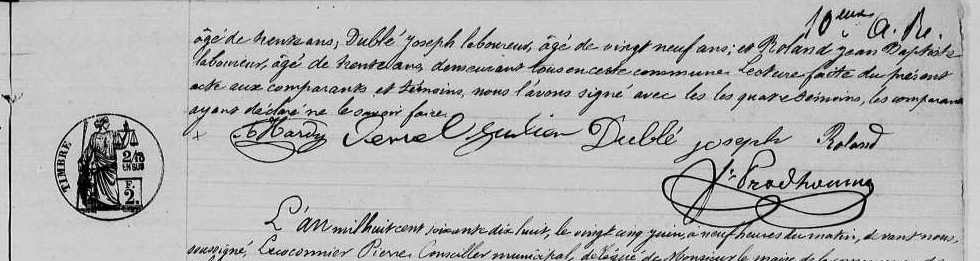 10eme A. Re.
âgé de trente ans, Dublé Joseph laboureur, âgé de vingt neuf ans; et Roland Jean Baptiste
laboureur, âgé de trente ans, demeurant tous en cette commune. Lecture faite du présent
acte aux comparants et témoins, nous l'avons signé avec les les quatre témoins, les comparants
ayant déclaré ne le savoir faire.
x Hardy Julien Dublé joseph Roland
Jh Prodhomme
TIMBRE
2/10
EN SUS
F.
2.
L'an mil huit cent soixante dix huit, le vingt cinq juin, à neuf heures du matin, devant nous,
soussigné, Pierre Conseiller municipal, délégué de Monsieur le maire de la commune de